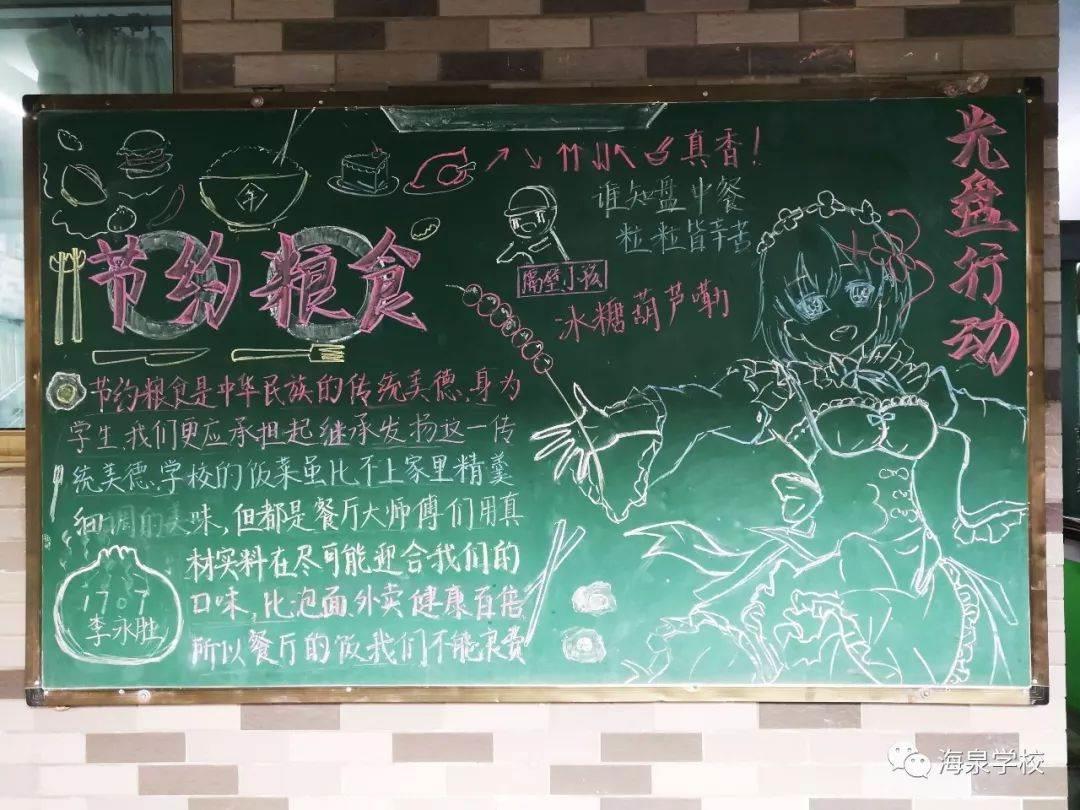 年
真香!
谁知盘中餐
粒粒皆辛苦
光盘行动
节约粮食
隔壁小孩
冰糖葫芦嘞
节约粮食是中华民族的传统美德,身为
学生,我们更应承担起继承发扬这一传
统美德,学校的饭菜虽比不上家里精羹
细调的美味,但都是餐厅大师傅们用真
材实料在尽可能迎合我们的
口味,比泡面,外卖健康百倍
所以餐厅的饭我们不能浪费
1707
李永胜
海泉学校